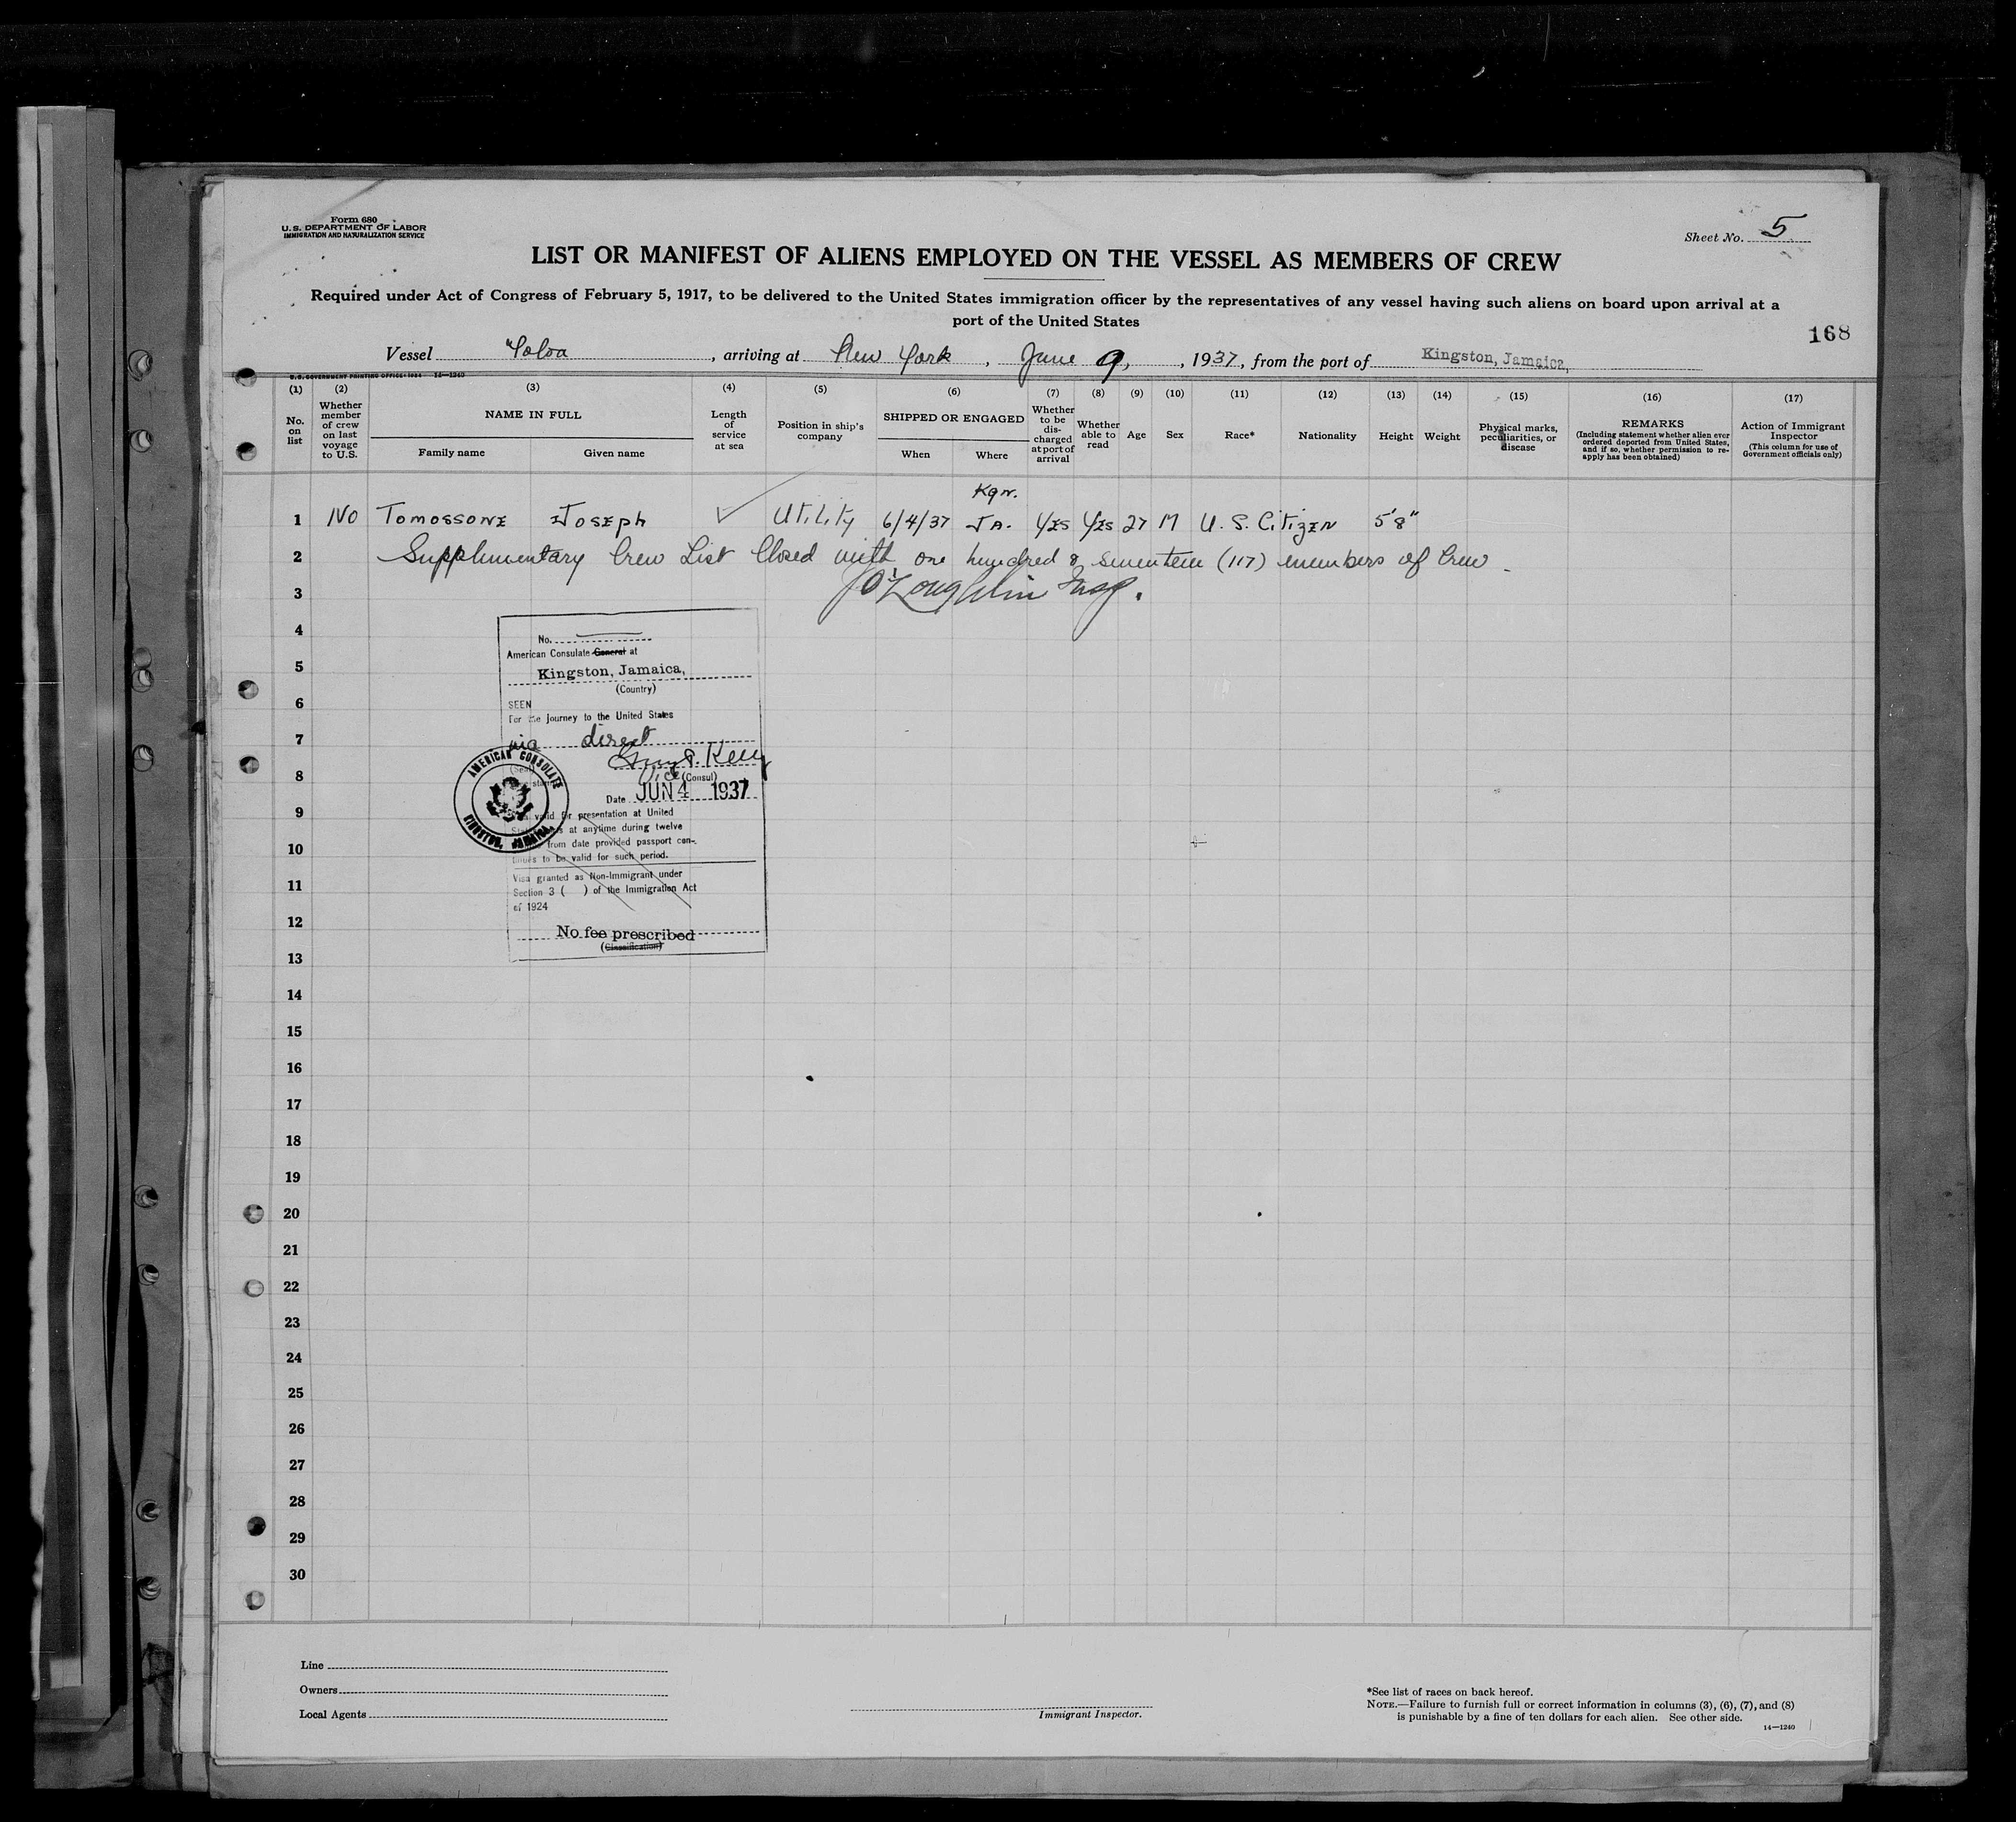 Form 680
U. S. DEPARTMENT OF LABOR
IMMIGRATION AND NATURALIZATION SERVICE
Sheet No. 5
LIST OR MANIFEST OF ALIENS EMPLOYED ON THE VESSEL AS MEMBERS OF CREW
Required under Act of Congress of February 5, 1917, to be delivered to the United States immigration officer by the representatives of any vessel having such aliens on board upon arrival at a
port of the United States
168
Vessel "Toloa , arriving at New York , June 9, , 1937, from the port of Kingston, Jamaica,
U. S. GOVERNMENT PRINTING OFFICE: 1934 14—1240
(1) (2) (3) (4) (5) (6) (7) (8) (9) (10) (11) (12) (13) (14) (15) (16) (17)
No. on list
Whether member of crew on last voyage to U.S.
NAME IN FULL
Family name Given name
Length of service at sea
Position in ship's company
SHIPPED OR ENGAGED
When Where
Whether to be discharged at port of arrival
Whether able to read
Age
Sex
Race*
Nationality
Height
Weight
Physical marks, peculiarities, or disease
REMARKS
(Including statement whether alien ever ordered deported from United States, and if so, whether permission to re-apply has been obtained)
Action of Immigrant Inspector
(This column for use of Government officials only)
Kgn.
1 No Tomossone Joseph Utility 6/4/37 JA. Yes Yes 27 M U. S. Citizen 5'8"
2 Supplimentary Crew List Closed with one hundred & seventeen (117) members of Crew.
3 O'Loughlin
4
No.
American Consulate General at
5
Kingston, Jamaica,
(Country)
6
SEEN
For the journey to the United States
7
via direct
Kelly
8
Vice (Consul)
(Seal)
Date JUN 4 1937
AMERICAN CONSULATE
KINGSTON, JAMAICA
9
valid for presentation at United
at anytime during twelve
10
from date provided passport con-
tinues to be valid for such period.
11
Visa granted as Non-Immigrant under
Section 3 ( ) of the Immigration Act
of 1924
12
No fee prescribed
(Classification)
13
14
15
16
17
18
19
20
21
22
23
24
25
26
27
28
29
30
Line
Owners
Local Agents
Immigrant Inspector.
*See list of races on back hereof.
NOTE.—Failure to furnish full or correct information in columns (3), (6), (7), and (8)
is punishable by a fine of ten dollars for each alien. See other side.
14—1240